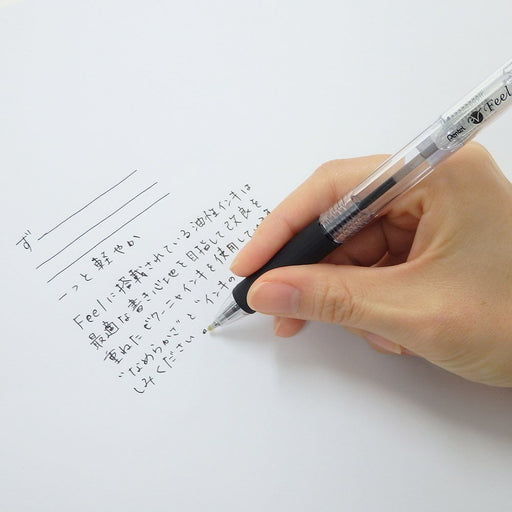 ず
ーっと軽やか
Feelに搭載されている油性インキは
最適な書き心地を目指して改良を
重ねたビクーニャインキを使用している
"なめらかさ"とインキの
しみください
Pentel Feel